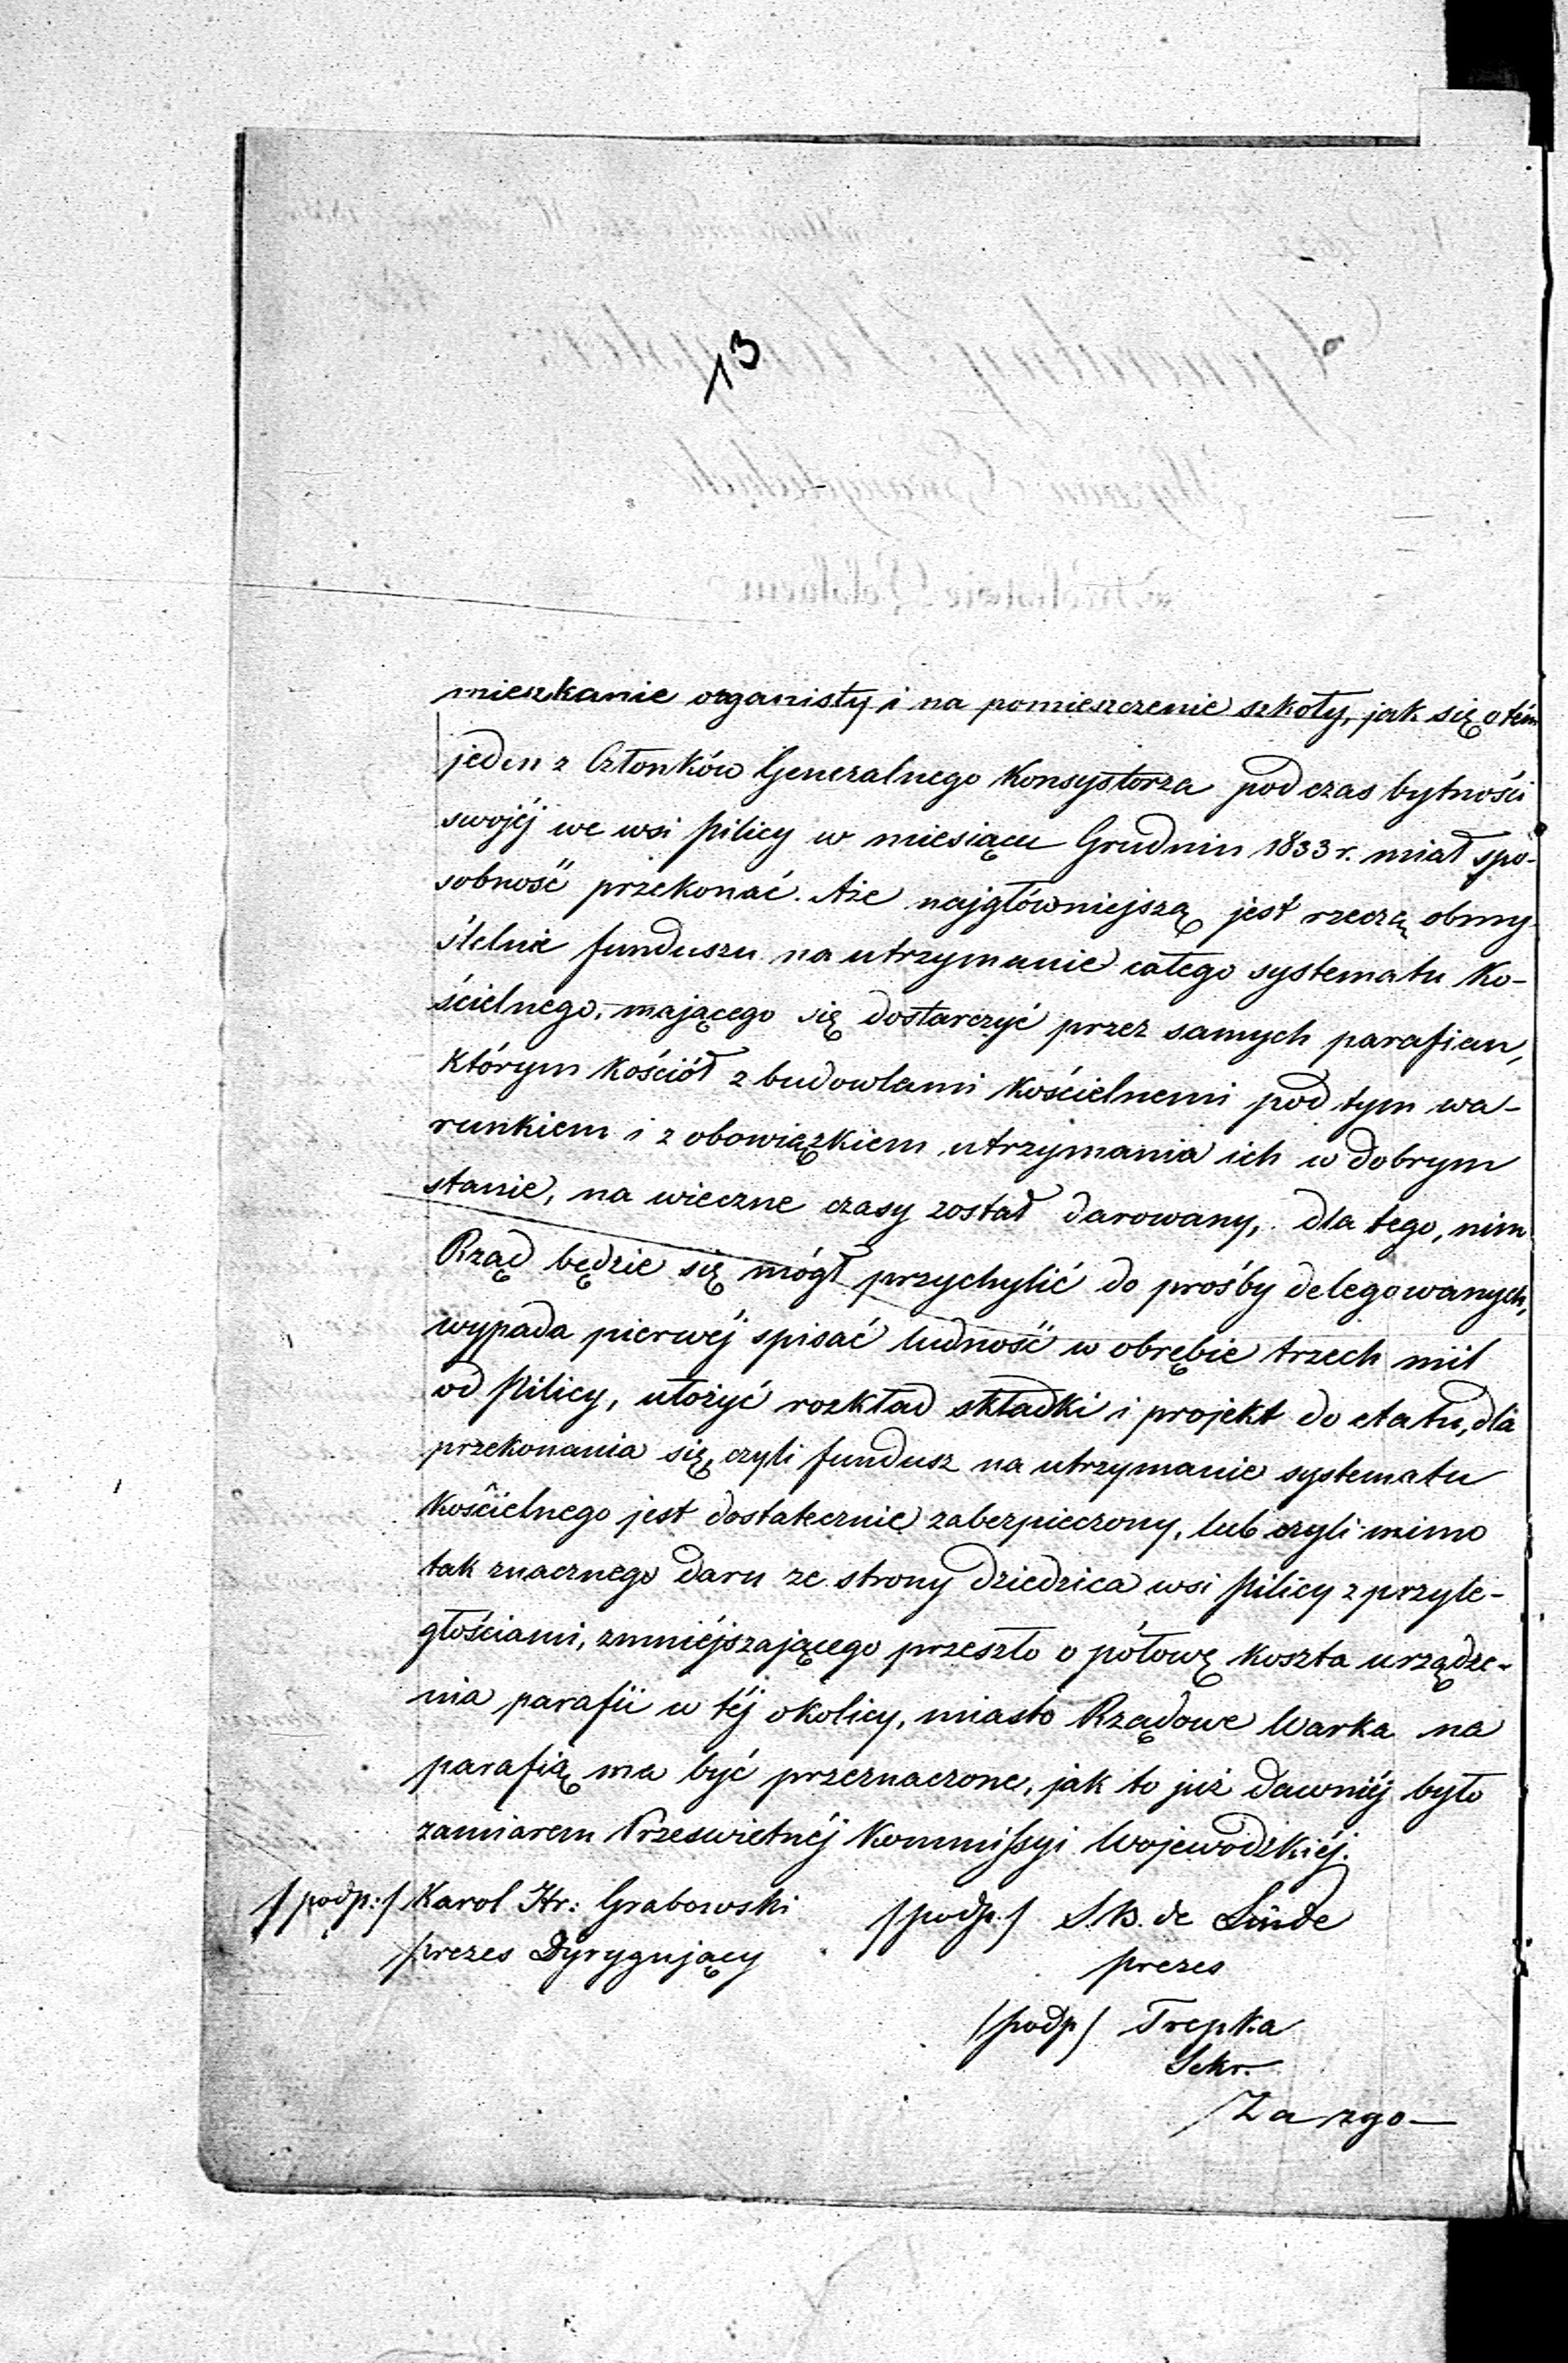 13
mieszkanie organisty i na pomieszczenie szkoły, jak się o tém
jeden z Członków Generalnego Konsystorza podczas bytności
swojéj we wsi Pilicy w miesiącu Grudniu 1833 r. miał spo-
sobność przekonać. Aże najgłówniejszą jest rzeczą obmy-
ślenie funduszu na utrzymanie całego systematu Ko-
ścielnego, mającego się dostarczyć przez samych parafian,
którym Kościół z budowlami Kościelnemi pod tym wa-
runkiem i z obowiązkiem utrzymania ich w dobrym
stanie, na wieczne czasy został darowany, dla tego, nim
Rząd będzie się mógł przychylić do prośby delegowanych,
wypada pierwéj spisać ludność w obrębie trzech mil
od Pilicy, ułożyć rozkład składki i projekt do etatu, dla
przekonania się, czyli fundusz na utrzymanie systematu
Kościelnego jest dostatecznie zabezpieczony, lub czyli mimo
tak znacznego daru ze strony dziedzica wsi Pilicy z przyle-
głościami, zmniéjszającego przeszło o połowę koszta urządze-
nia parafii w téj okolicy, miasto Rządowe Warka na
parafią ma być przeznaczone, jak to już dawniéj było
zamiarem Prześwietnéj Kommissyi Wojewodzkiéj.
/podp:/ Karol Hr: Grabowski /podp./ S. B. de Linde
Prezes Dyrygujący Prezes
/podp/ Trepka
Sekr.
Za zgo-